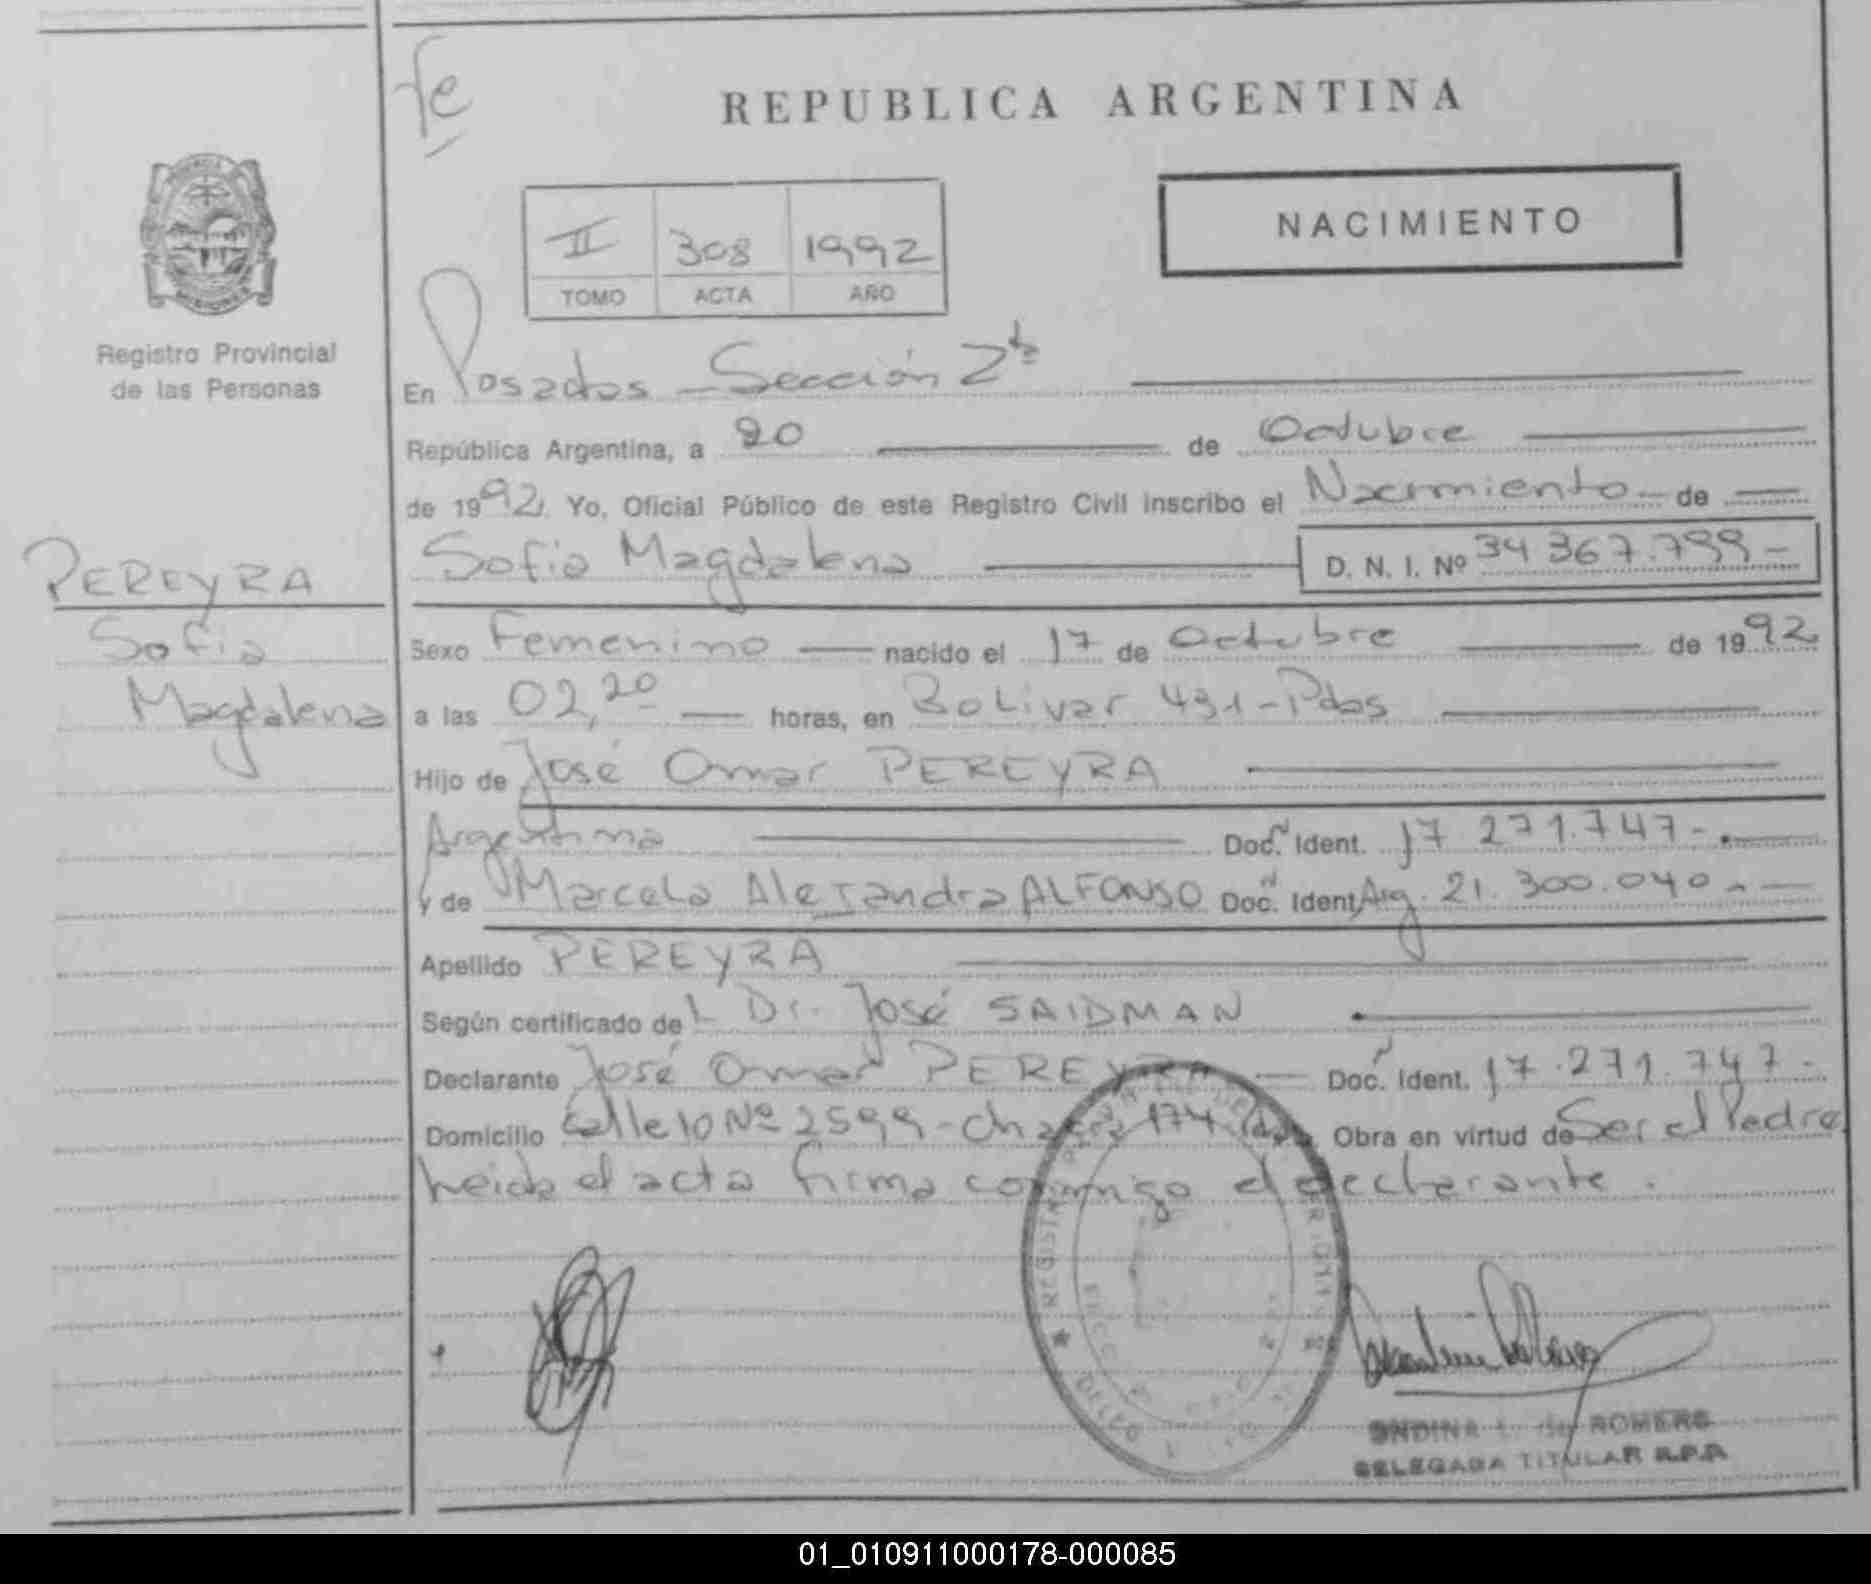 fe
REPUBLICA ARGENTINA
NACIMIENTO
II 308 1992
TOMO ACTA AÑO
Registro Provincial
de las Personas
En Posadas - Sección 2ª
República Argentina, a 20 de Octubre
de 1992. Yo, Oficial Público de este Registro Civil inscribo el Nacimiento de
Sofia Magdalena D. N. I. Nº 34 367.799 -
PEREYRA
Sofia
Magdalena
Sexo Femenino nacido el 17 de Octubre de 1992
a las 02,20 horas, en Bolivar 431 - Pdas
Hijo de José Omar PEREYRA
Argentina Doc. Ident. 17 271.747 -
y de Marcela Alejandra ALFONSO Doc. Ident. Arg. 21.300.040 -
Apellido PEREYRA
Según certificado del Dr. José SAIDMAN
Declarante José Omar PEREYRA Doc. Ident. 17.271.747 -
Domicilio Calle 10 Nº 2599 - Chacra 174 Pdas Obra en virtud de Ser el Padre
Leida el acta firma conmigo el declarante.
ONDINA L. de ROMERO
DELEGADA TITULAR R.P.P.
01_010911000178-000085